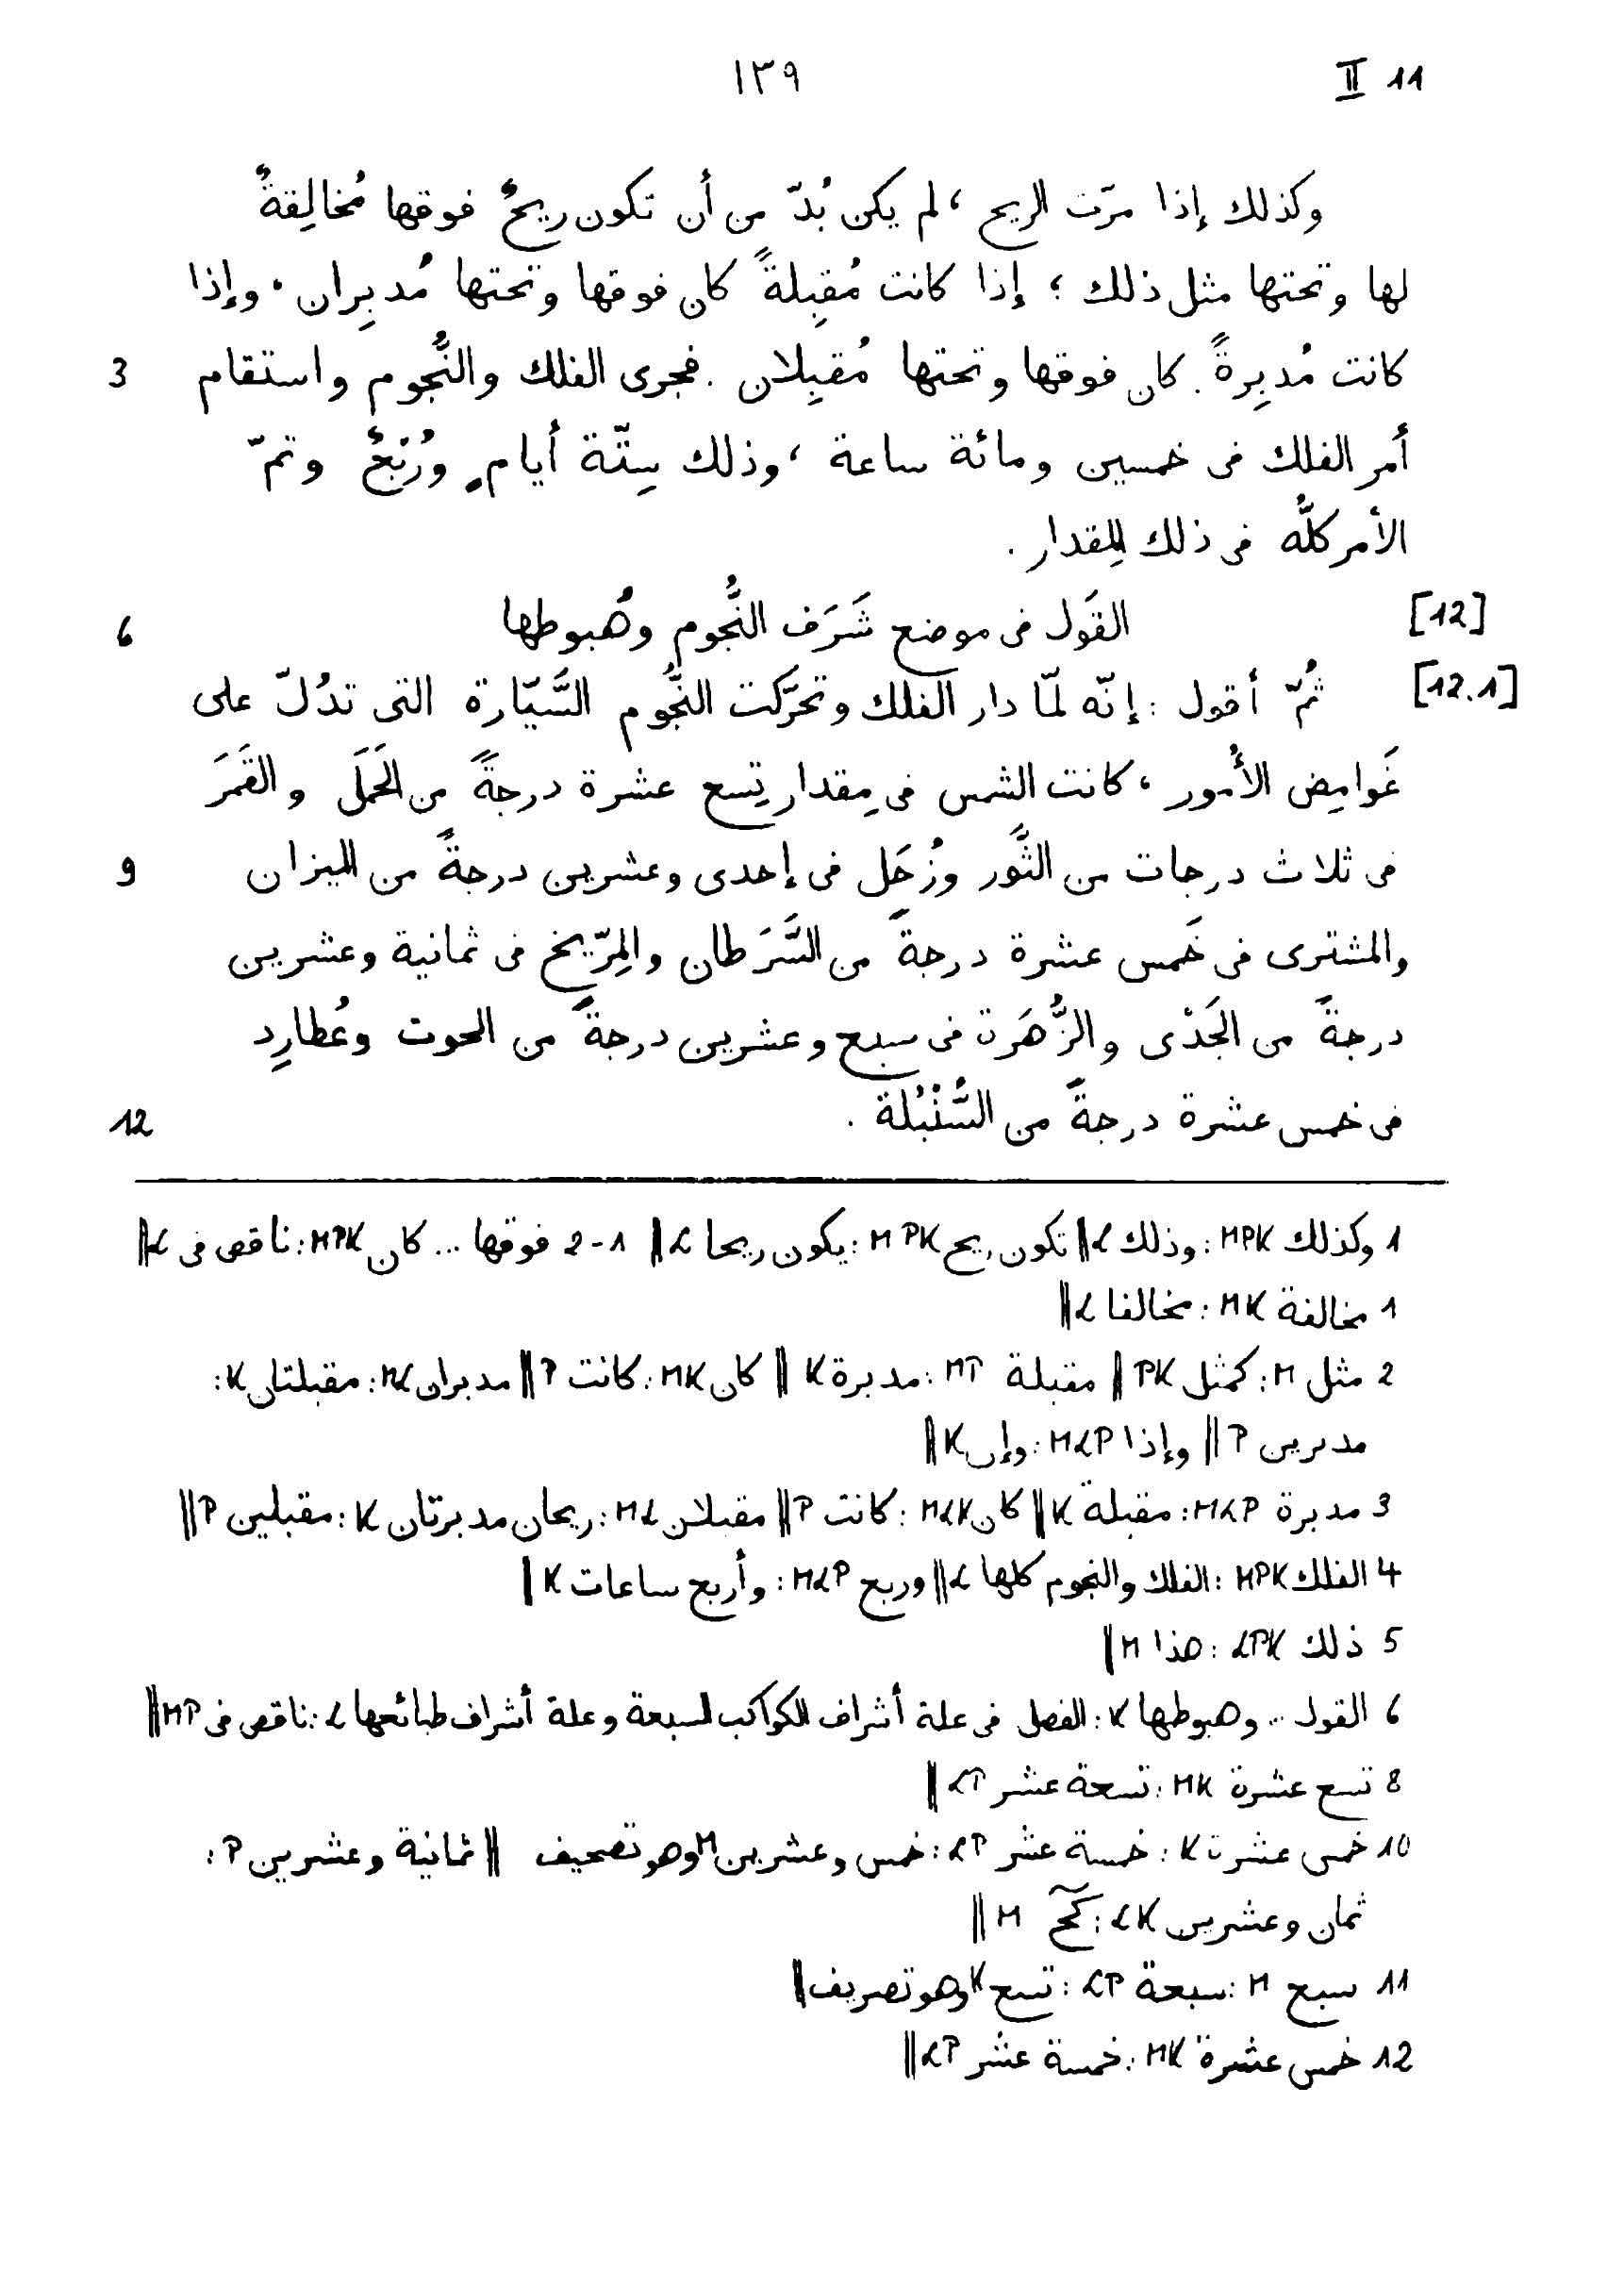 ١٣٩
II 11
وكذلك إذا مرّت الريح ، لم يكن بُدّ من أن تكون ريحٌ فوقها مُخالِفةٌ
لها وتحتها مثل ذلك ؛ إذا كانت مُقبِلةً كان فوقها وتحتها مُدبِران . وإذا
كانت مُدبِرةً . كان فوقها وتحتها مُقبِلان . فجرى الفلك والنُّجوم واستقام 3
أمر الفلك فى خمسين ومائة ساعة ، وذلك سِتّة أيامٍ ورُبْعٌ وتمّ
الأمر كلُّه فى ذلك المِقدار .
[12] القَول فى موضع شَرَف النُّجوم وهُبوطها 6
[12.1] ثُمّ أقول : إنّه لمّا دار الفلك وتحرّكت النُّجوم السَّيّارة التى تدُلّ على
غَوامِض الأُمور ، كانت الشمس فى مِقدار تِسع عشرة درجةً من الحَمَل والقَمَرَ
فى ثلاث درجات من الثَّور وزُحَل فى إحدى وعشرين درجةً من الميزان 9
والمشترى فى خَمس عشرة درجةً من السَّرَطان والمِرّيخ فى ثمانية وعشرين
درجةً من الجَدْى والزُّهَرة فى سبع وعشرين درجةً من الحوت وعُطارِد
فى خمس عشرة درجةً من السُّنْبُلة . 12
1 وكذلك MPK : وذلك L ‖ تكون ريح MPK : يكون ريحا L ‖ 1-2 فوقها ... كان MPK : ناقص فى L ‖
1 مخالفة MK : مخالفا L ‖
2 مثل M : كمثل PK ‖ مقبلة MP : مدبرة K ‖ كان MK : كانت P ‖ مدبران ML : مقبلتان K :
مدبرين P ‖ وإذا MLP : وإن K ‖
3 مدبرة MLP : مقبلة K ‖ كان MLK : كانت P ‖ مقبلان ML : ريحان مدبرتان K : مقبلين P ‖
4 الفلك MPK : الفلك والنجوم كلها L ‖ وربع MLP : وأربع ساعات K ‖
5 ذلك LPK : هذا M ‖
6 القول ... وهبوطها K : الفصل فى علة أشراف الكواكب السبعة وعلة أشراف طبائعها L : ناقص فى MP ‖
8 تسع عشرة MK : تسعة عشر LP ‖
10 خمس عشرة K : خمسة عشر LP : خمس وعشرين M وهو تصحيف ‖ ثمانية وعشرين P :
ثمان وعشرين LK : كح M ‖
11 سبع M : سبعة LP : تسع K وهو تصريف ‖
12 خمس عشرة MK : خمسة عشر LP ‖